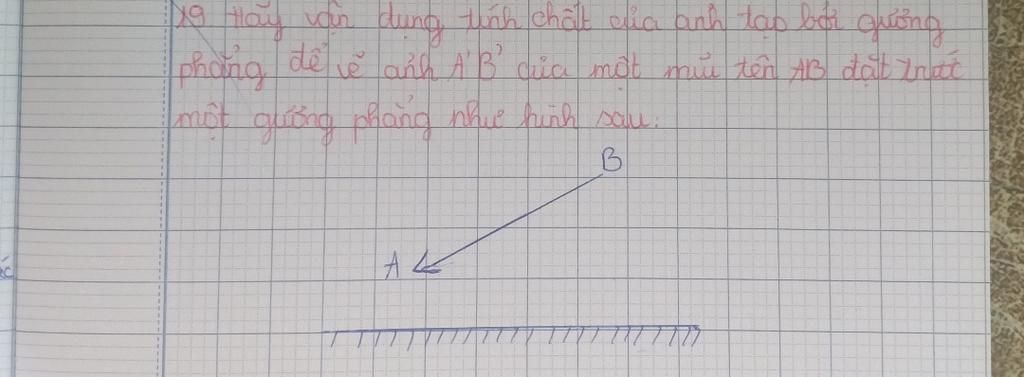 19 Hãy vận dụng tính chất của ảnh tạo bởi gương
phẳng để vẽ ảnh A'B' của một mũi tên AB đặt trước
một gương phẳng như hình sau:
B
A